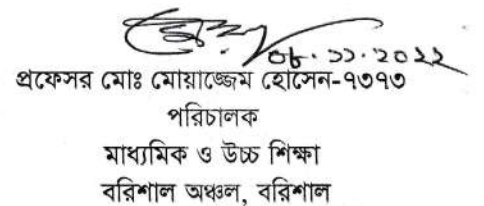 ০৮.১১.২০২২
প্রফেসর মোঃ মোয়াজ্জেম হোসেন-৭৩৭৩
পরিচালক
মাধ্যমিক ও উচ্চ শিক্ষা
বরিশাল অঞ্চল, বরিশাল